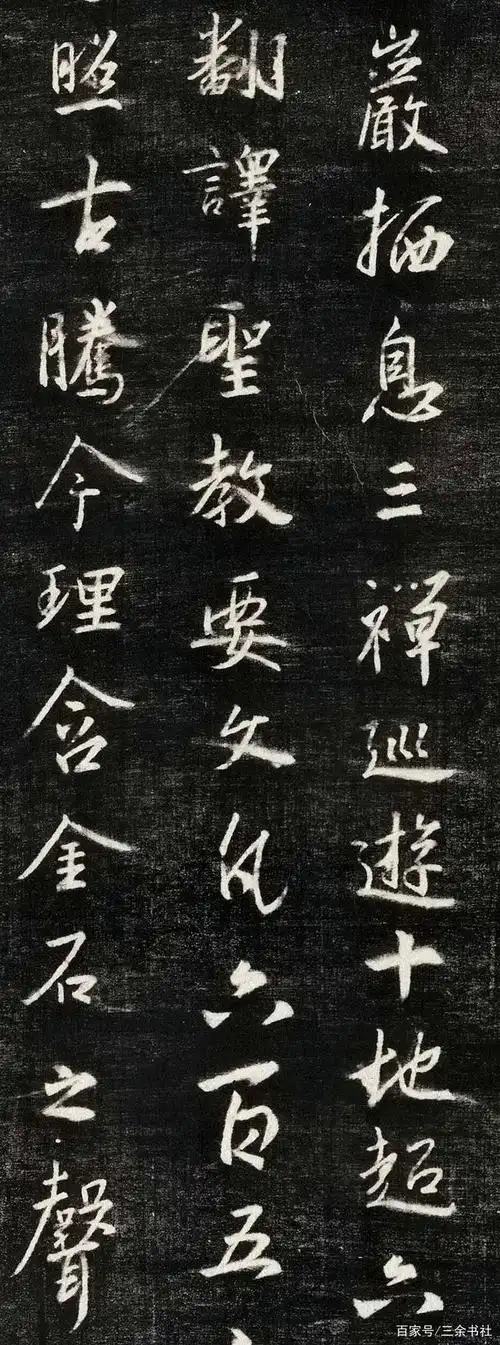 巖栖息三禪巡遊十地超六
翻譯聖教要文凡六百五
照古騰今理含金石之聲
百家号/三余书社